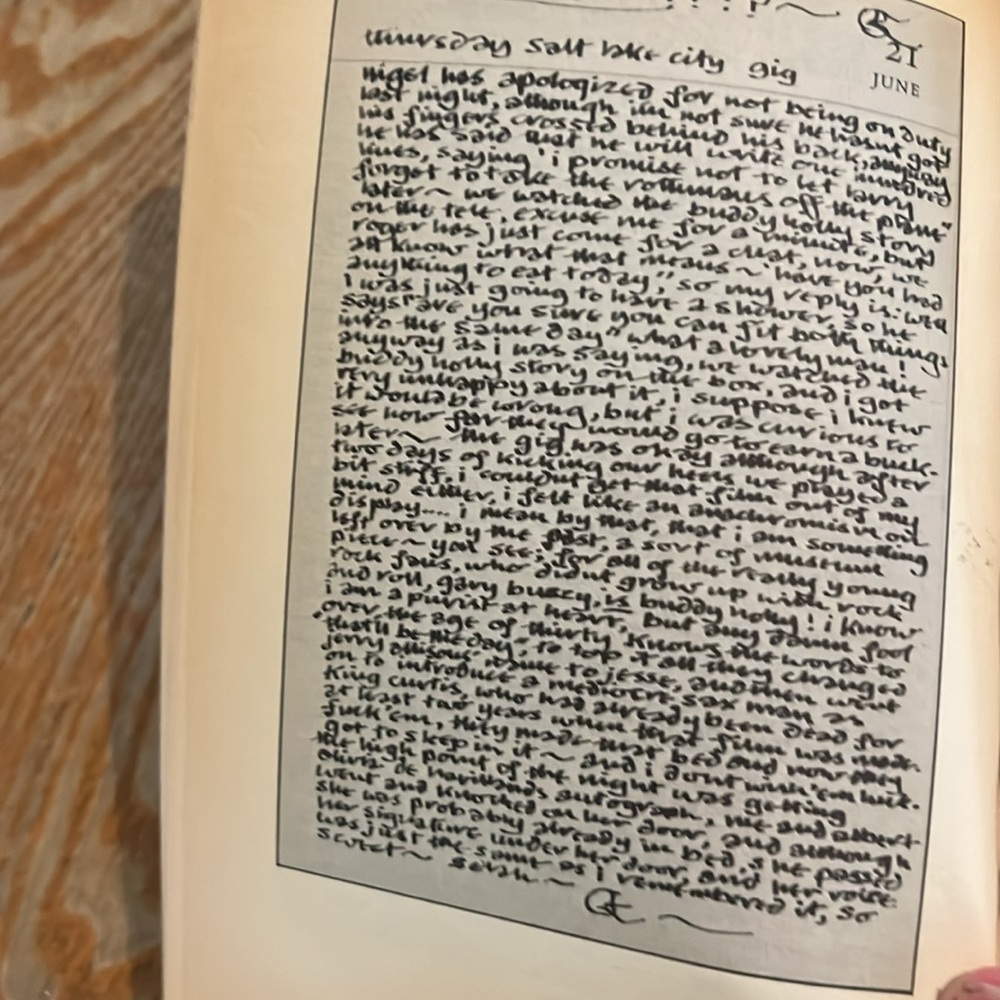 21
JUNE
thursday salt lake city gig
nigel has apologized for not being on duty
last night, although im not sure he hasnt got
his fingers crossed behind his back, anyway
he has said that he will write out one hundred
lines, saying 'i promise not to let larry
forget to take the rottmans off the plane"
later~ we watched the buddy holly story
on the tele, excuse me for a minute, but
roger has just come for a chat, now, we
all know what that means ~ "have you had
anything to eat today?", so my reply is: well
i was just going to have a shower, so he
says "are you sure you can fit both things
into the same day" what a lovely man!
anyway as i was saying, we watched the
buddy holly story on the box, and i got
very unhappy about it, i suppose i knew
it would be wrong, but i was curious to
see how far they would go to earn a buck-
later~ the gig was okay although after
two days of kicking our heels we played a
bit stiff, i couldnt get that film out of my
mind either, i felt like an anachronism on
display.... i mean by that, that i am something
left over by the past, a sort of museum
piece~ you see; for all of the really young
rock fans, who didnt grow up with rock
and roll, gary busey, is buddy holly! i know
i am a purist at heart, but any damn fool
over the age of thirty knows the words to
"that'll be the day", to top it all they changed
jerry allisons name to jesse, and then went
on to introduce a mediocre sax man as
king curtis, who had already been dead for
at least two years when that film was made.
fuck 'em, they made that bed and now they
got to sleep in it~ and i dont wish 'em luck.
the high point of the night was getting
olivia de havillands autograph, me and albert
went and knocked on her door, and although
she was probably already in bed, she passed
her signature under her door, and her voice
was just the same as i remembered it, so
sweet~